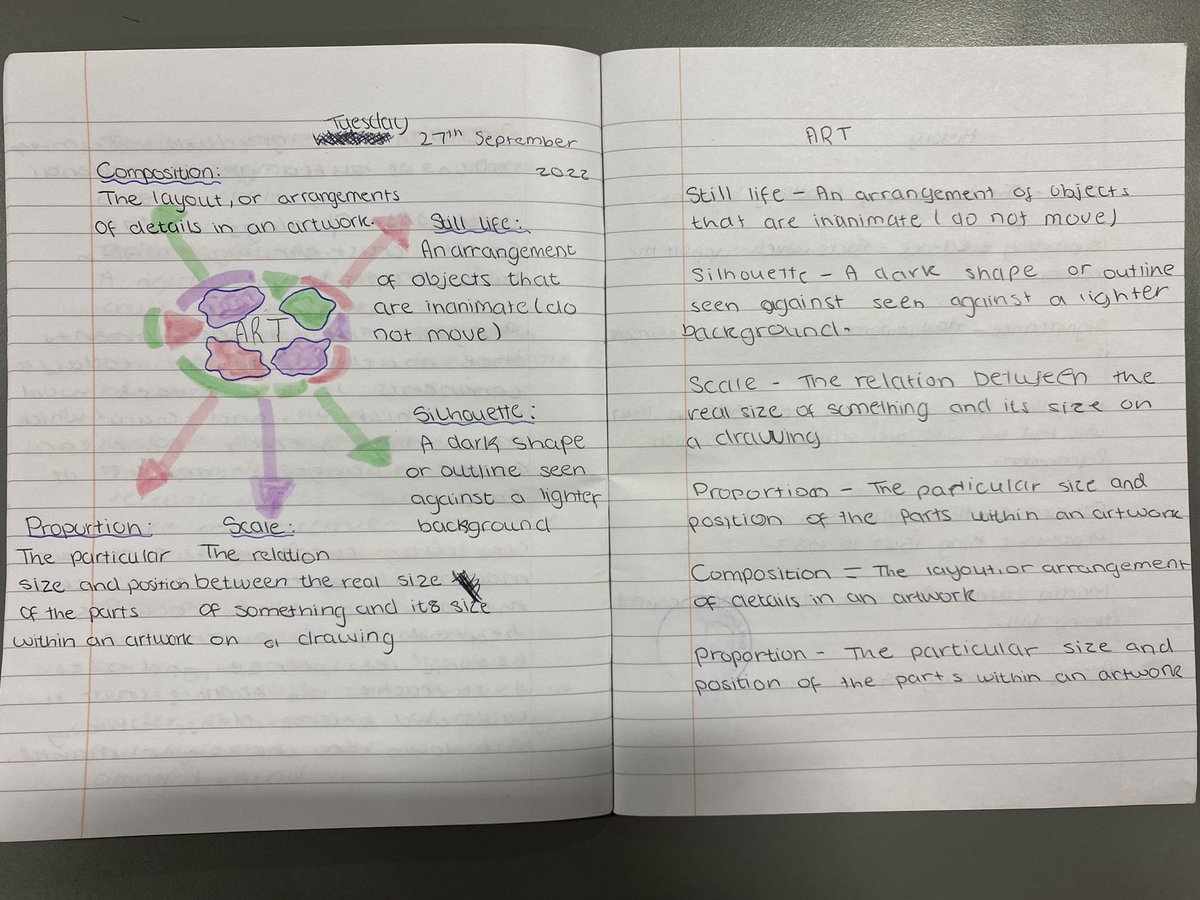 Tuesday
27th September
2022
Composition:
The layout, or arrangements
of details in an artwork.
Still life:
An arrangement
of objects that
are inanimate (do
not move)
ART
Silhouette:
A dark shape
or outline seen
against a lighter
background
Proportion:
The particular
size and position
of the parts
within an artwork
Scale:
The relation
between the real size
of something and its size
on a drawing
ART
Still life - An arrangement of objects
that are inanimate (do not move)
Silhouette - A dark shape or outline
seen against seen against a lighter
background.
Scale - The relation between the
real size of something and its size on
a drawing
Proportion - The particular size and
position of the parts within an artwork
Composition = The layout, or arrangement
of details in an artwork
Proportion - The particular size and
position of the parts within an artwork